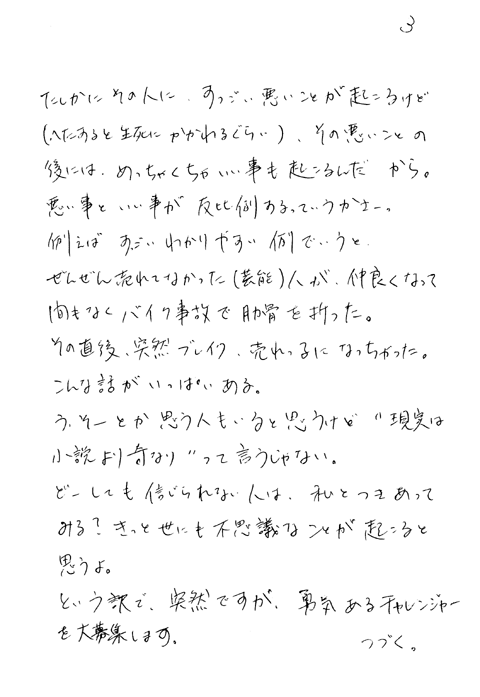 3
たしかに その人に、すっごい悪いことが起こるけど
(へたすると生死にかかわるぐらい)、その悪いことの
後には、めっちゃくちゃいい事も起こるんだ から。
悪い事と いい事が 反比例するっていうかさーっ
例えば すごい わかりやすい 例でいうと、
ぜんぜん売れてなかった(芸能)人が、仲良くなって
間もなく バイク事故で 肋骨を折った。
その直後、突然 ブレイク、売れっ子に なっちゃった。
こんな話がいっぱいある。
う、そーとか思う人もいると思うけど "現実は
小説より奇なり"って言うじゃない。
どーしても信じられない人は、私とつきあって
みる? きっと世にも不思議なことが起こると
思うよ。
という訳で、突然ですが、勇気あるチャレンジャー
を大募集します。
つづく。